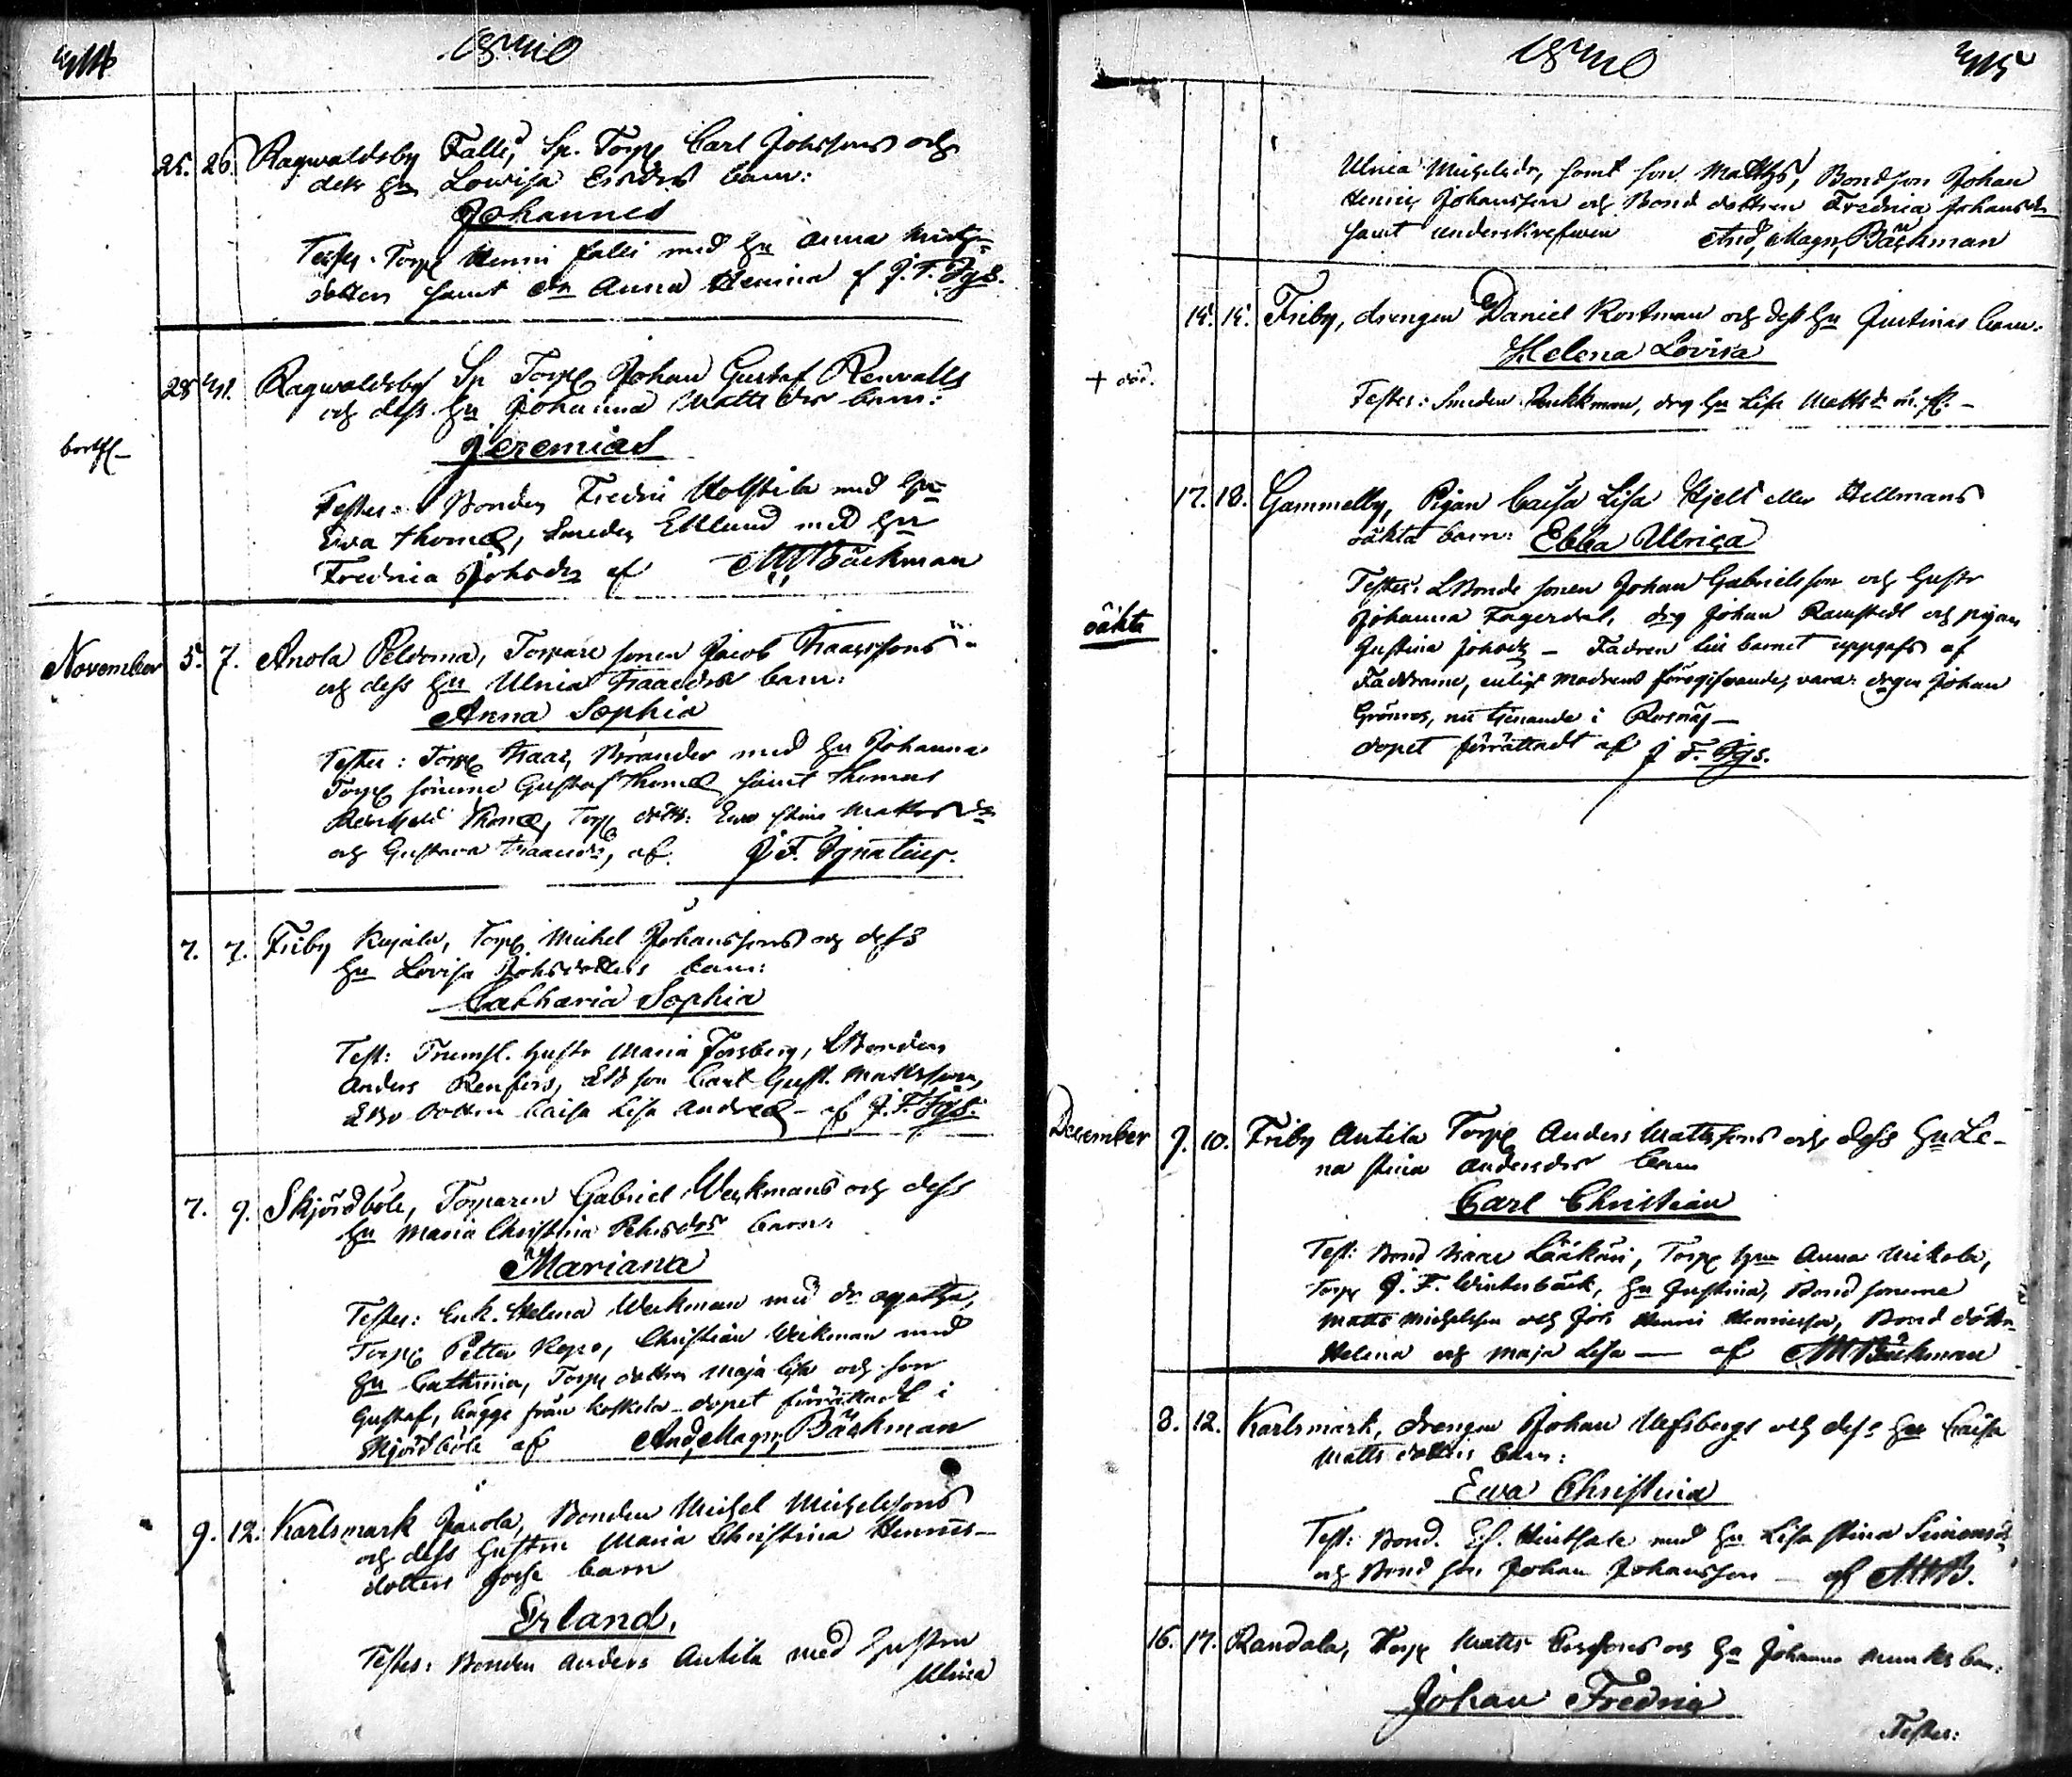 1840
25. 26. Ragwaldsby Falli, Sp. Torp Carl Johssons och
dess Hu Lowisa Ersdrs barn:
Johannes
Testes: Torp Henric Falli med Hu Anna Mich
dotter samt dr Anna Henrica af J. F. Igs.
28 Ragwaldsby Sp Torp Johan Gustaf Renvalls
och dess Hu Johanna Matts drs barn:
Jeremias
bortfl
Testes: Bonden Fredric Holstila med Hu
Ewa Thomæ, Smeden Eklund med Hu
Fredrica Johsdr af AMBäckman
November 5. 7. Anola Peldoma, Torpare sonen Jacob Isaacssons
och dess Hu Ulrica Isaacdrs barn:
Anna Sophia
Testes: Torp Isaac Brander med Hu Johanna
Torp sönerne Gustaf Thomæ samt Thomas
Thomæ, Torp dottr: Ewa Stina Mattsdr
och Gustava Isaacsdr, af J. F. Ignatius.
7. 7. Friby Kujala, Torp Michel Johanssons och dess
Hu Lovisa Johsdotters barn:
Catharia Sophia
Test: Trumsl. Hustr Maria Forsberg, LBonden
Anders Renfors, LB son Carl Gust. Mattsson,
LBo dottren Caisa Lisa Andreæ - af J. F. Igs.
7. 9. Skjördböle, Torparen Gabriel Weckmans och dess
Hu Maria Christina Petersdrs barn:
Mariana
Testes: Enk. Helena Weckman med dr Agatha,
Torp Petter Repo, Christian Weckman med
Hu Cathrina, Torp dottren Maja Lisa och son
Gustaf, bägge från Koskela - dopet förrättadt i
Skjördböle af And. Magn. Bäckman
9. 12. Karlsmark Jacola, Bonden Michel Michelssons
och dess Hustru Maria Christina Henrics-
dotters barn
Erland.
Testes: Bonden Anders Antila med Hustru
Ulrica
1840
Ulrica Michelsdr, samt son Matths, Bondson Johan
Henric Johansson och Bond dottren Fredrica Johansdr
samt underskrefwen And. Magn. Bäckman
15. 15. Friby, drengen Daniel Rostman och dess Hu Justinas barn:
Helena Lovisa
+ död.
Testes: Smeden Zuckman, drg Hu Lisa Mattsdr
17. 18. Gammelby, Pigan Caisa Lisa Hjelt eller Hellmans
oäkta barn: Ebba Ulrica
oäkta
Testes: LBonde sonen Johan Gabrielsson och Hustr
Johanna Fagerdal, drg Johan Ramstedt och pigan
Justina Johsdr - Fadren till barnet uppgafs af
Faddrarne, enligt Modrens föregifvande, vara: drgen Johan
Grönros, nu tjenande i Rosnäs -
dopet förrättadt af J. F. Igs.
December 9. 10. Friby Antila Torp Anders Mattssons och dess Hu Le-
na Stina Andersdrs barn
Carl Christian
Test: Bond Isaac Lääkäri, Torp Hu Anna Mickola,
Torp J. F. Winterbäck, Hu Justina, Bond sönerne
Matts Michelsson och Joh Henric Henricsson, Bond döttr
Helena och Maja Lisa - af AMBäckman
8. 12. Karlsmark, drengen Johan Ulfsbergs och dess Hu Caisa
Matts dotters barn:
Ewa Christina
Test: Bond. Hintsala med Hu Lisa Stina Simonsdr
och Bond son Johan Johansson - af AMB.
16. 17. Randala, Torp Matts Ericssons och Hu Johanna Munks barn:
Johan Fredric
Testes: